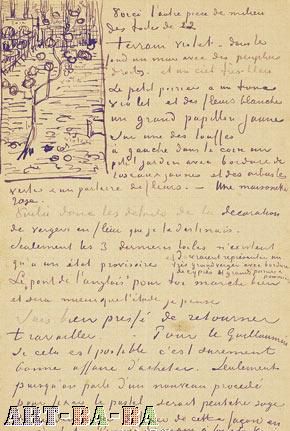 Voici l'autre pièce de milieu
des toiles de 12
terrain violet – dans le
fond un mur avec des peupliers
droits et un ciel très bleu
Le petit poirier a un tronc
violet et des fleurs blanches
un grand papillon jaune
sur une des touffes
à gauche dans le coin un
petit jardin avec bordure de
roseaux jaunes et des arbustes
verts et un parterre de fleurs – Une maisonnette
rose.
Voilà donc les détails de la décoration
de vergers en fleur que je te destinais.
Seulement les 3 dernières toiles n'existent
qu'à un état provisoire et devraient représenter un
très grand verger avec bordure
de cyprès et grands poiriers & pommiers
Le pont de l'anglais pour toi marche bien
et sera mieux que l'étude je pense
Suis bien pressé de retourner
travailler. Pour le Guillaumin
si cela est possible c'est sûrement
bonne affaire d'acheter. Seulement
puisqu'on parle d'un nouveau procédé
pour fixer le pastel serait peut-être sage
de cette façon en
ART-RA-RA